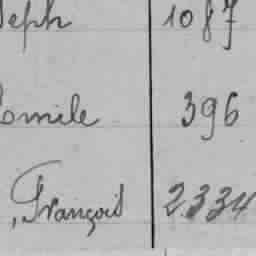 Joseph 1087
Camile 396
François 2334